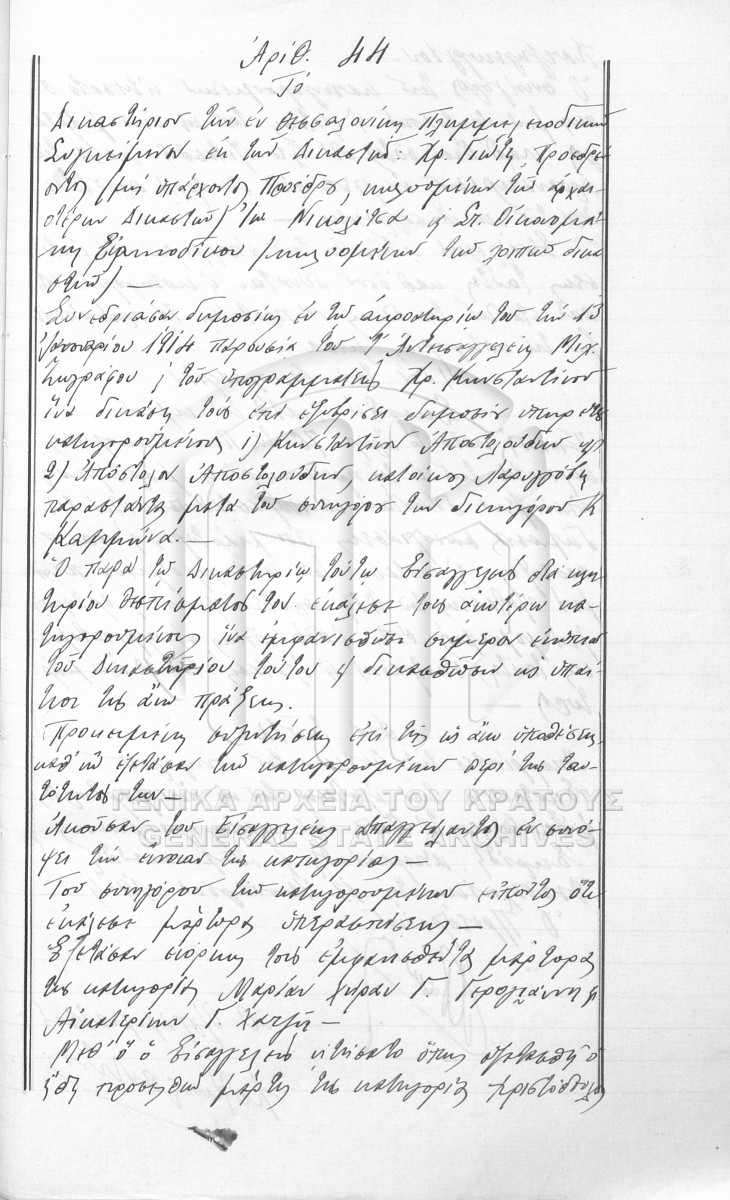 Ἀριθ. 44
Τὸ
Δικαστήριον τῶν ἐν Θεσσαλονίκῃ Πλημμελειοδικῶν
Συγκείμενον ἐκ τῶν Δικαστῶν: Χρ. Γιώτη, Προεδρεύ-
οντος (μὴ ὑπάρχοντος Προέδρου, κωλυομένων τῶν ἀρχαι-
οτέρων Δικαστῶν) Νικολέτσα & Σπ. Οἰκονομά-
κη Εἰρηνοδίκου (κωλυομένων τῶν λοιπῶν δικα
στῶν) —
Συνεδριάσαν δημοσίᾳ ἐν τῷ ἀκροατηρίῳ του τὴν 13
Ἰανουαρίου 1914 παρουσίᾳ τοῦ Ἀντεισαγγελέως Μιχ.
Ζωγράφου & τοῦ ὑπογραμματέως Χρ. Κωνσταντίνου
ἵνα δικάσῃ τοὺς ἐπὶ ἐξυβρίσει δημοσίων ὑπηρετῶν
κατηγορουμένους 1) Κωνσταντῖνον Ἀποστολούδην καὶ
2) Ἀπόστολον Ἀποστολούδην, κατοίκους Λαρυγγόβης
παραστάντας μετὰ τοῦ συνηγόρου των δικηγόρου Κ
Καμμώνα. —
Ὁ παρὰ τῷ Δικαστηρίῳ τούτῳ Εἰσαγγελεὺς διὰ κλη
τηρίου θεσπίσματός του ἐκάλεσε τοὺς ἀνωτέρω κα-
τηγορουμένους ἵνα ἐμφανισθῶσι σήμερον ἐνώπιον
τοῦ Δικαστηρίου τούτου & δικασθῶσιν ὡς ὑπαί
τιοι τῆς ἄνω πράξεως.
Προκειμένης συζητήσεως ἐπὶ τῆς ὡς ἄνω ὑποθέσεως,
καθ' ἣν ἐξετάσαν τῶν κατηγορουμένων περὶ τῆς ταυ-
τότητός των —
Ἀκοῦσαν τοῦ Εἰσαγγελέως ἀπαγγείλαντος ἐν συνό-
ψει τὴν ἔννοιαν τῆς κατηγορίας —
Τοῦ συνηγόρου τῶν κατηγορουμένων εἰπόντος ὅτι
ἐκάλεσε μάρτυρας ὑπερασπίσεως —
Ἐξετάσαν ἐνόρκως τοὺς ἐμφανισθέντας μάρτυρας
τῆς κατηγορίας Μαρίαν χήραν Γ. Γερογιάννη &
Αἰκατερίνην Γ. Χατζῆ —
Μεθ' ὃ ὁ Εἰσαγγελεὺς ᾐτήσατο ὅπως ἐξετασθῇ ὁ
ἤδη προσελθὼν μάρτυς τῆς κατηγορίας Χριστόδουλος
ΓΕΝΙΚΑ ΑΡΧΕΙΑ ΤΟΥ ΚΡΑΤΟΥΣ
GENERAL STATE ARCHIVES